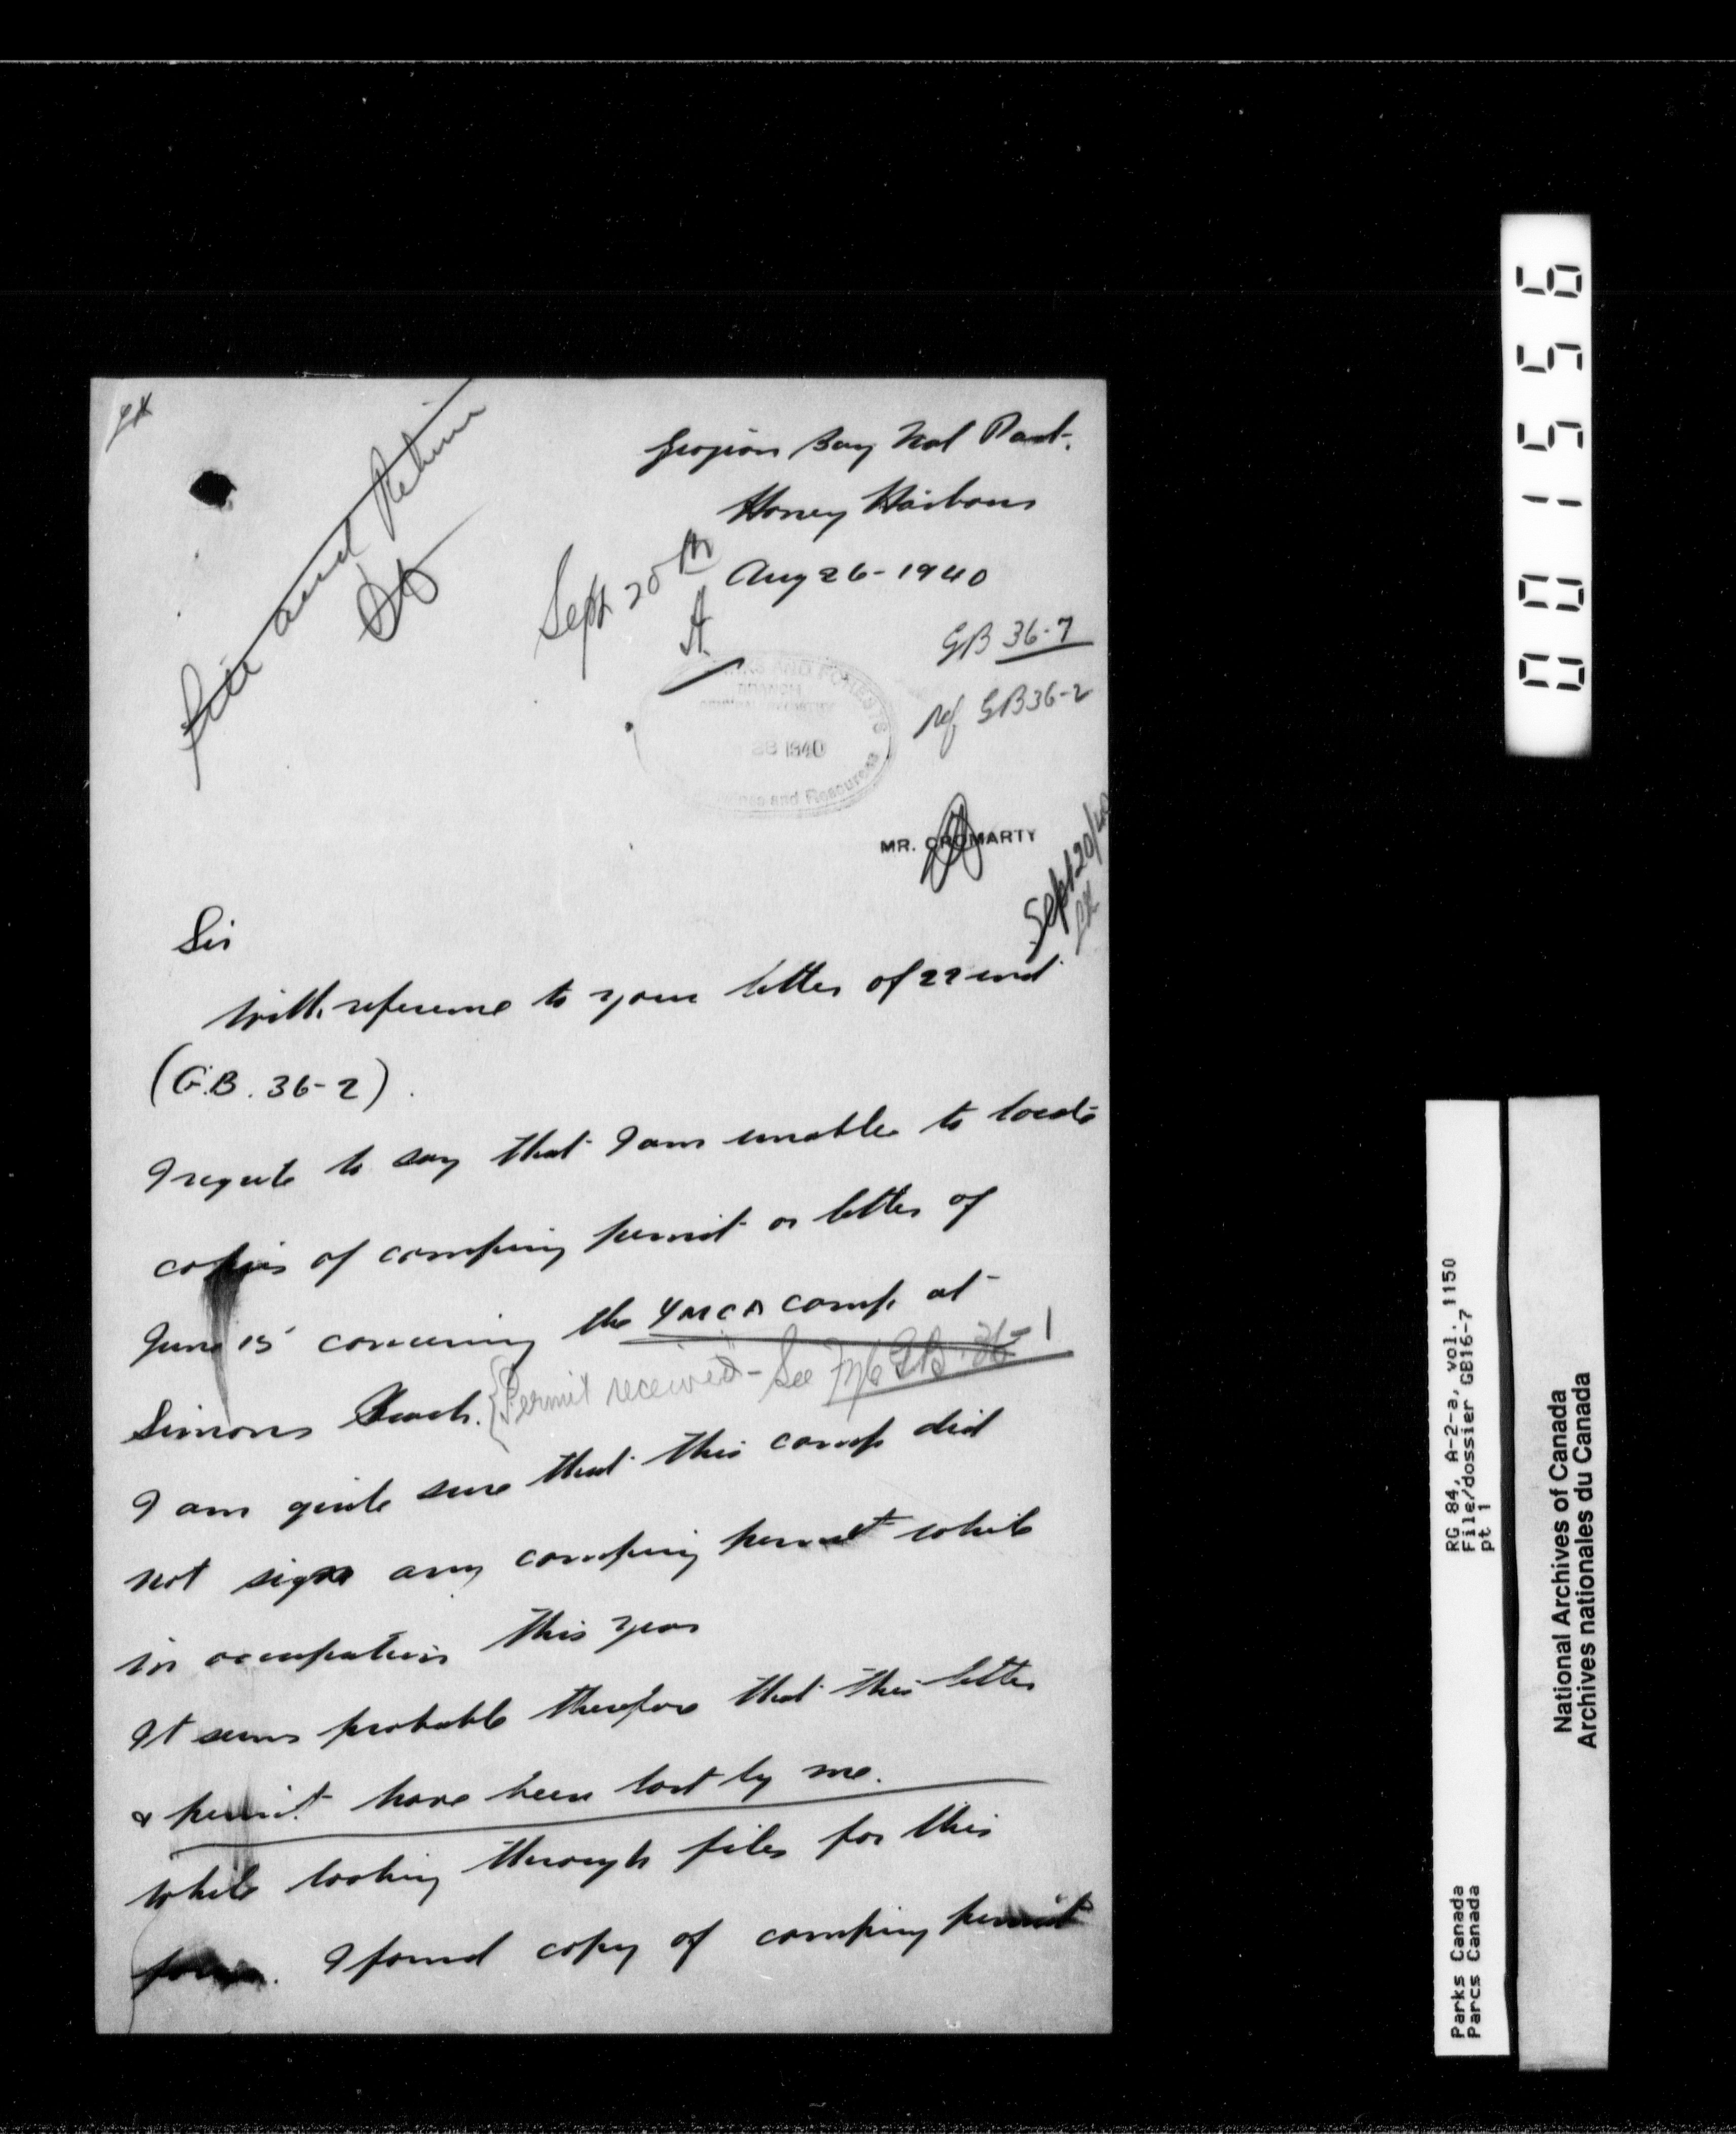 Georgian Bay Nat Park.
Honey Harbour
Aug 26 - 1940
File and Return
Sept 20th
A
GB 36-7
ref GB36-2
PARKS AND FORESTS
BRANCH
28 1940
Mines and Resources
MR. CROMARTY
Sept 20/40
Sir
With reference to your letter of 22nd
(G.B. 36-2).
I regrete to say that I am unable to locate
copies of camping permit or letter of
June 15 concerning the YMCA camp at
Simons Beach. {Permit received - See File GB-36-1
I am quite sure that this camp did
not sign any camping permit while
in occupation this year
It seems probable therefore that this letter
& permit have been lost by me.
While looking through files for this
form. I found copy of camping permit
001556
RG 84, A-2-a, vol. 1150
File/dossier GB16-7
pt 1
Parks Canada
Parcs Canada
National Archives of Canada
Archives nationales du Canada